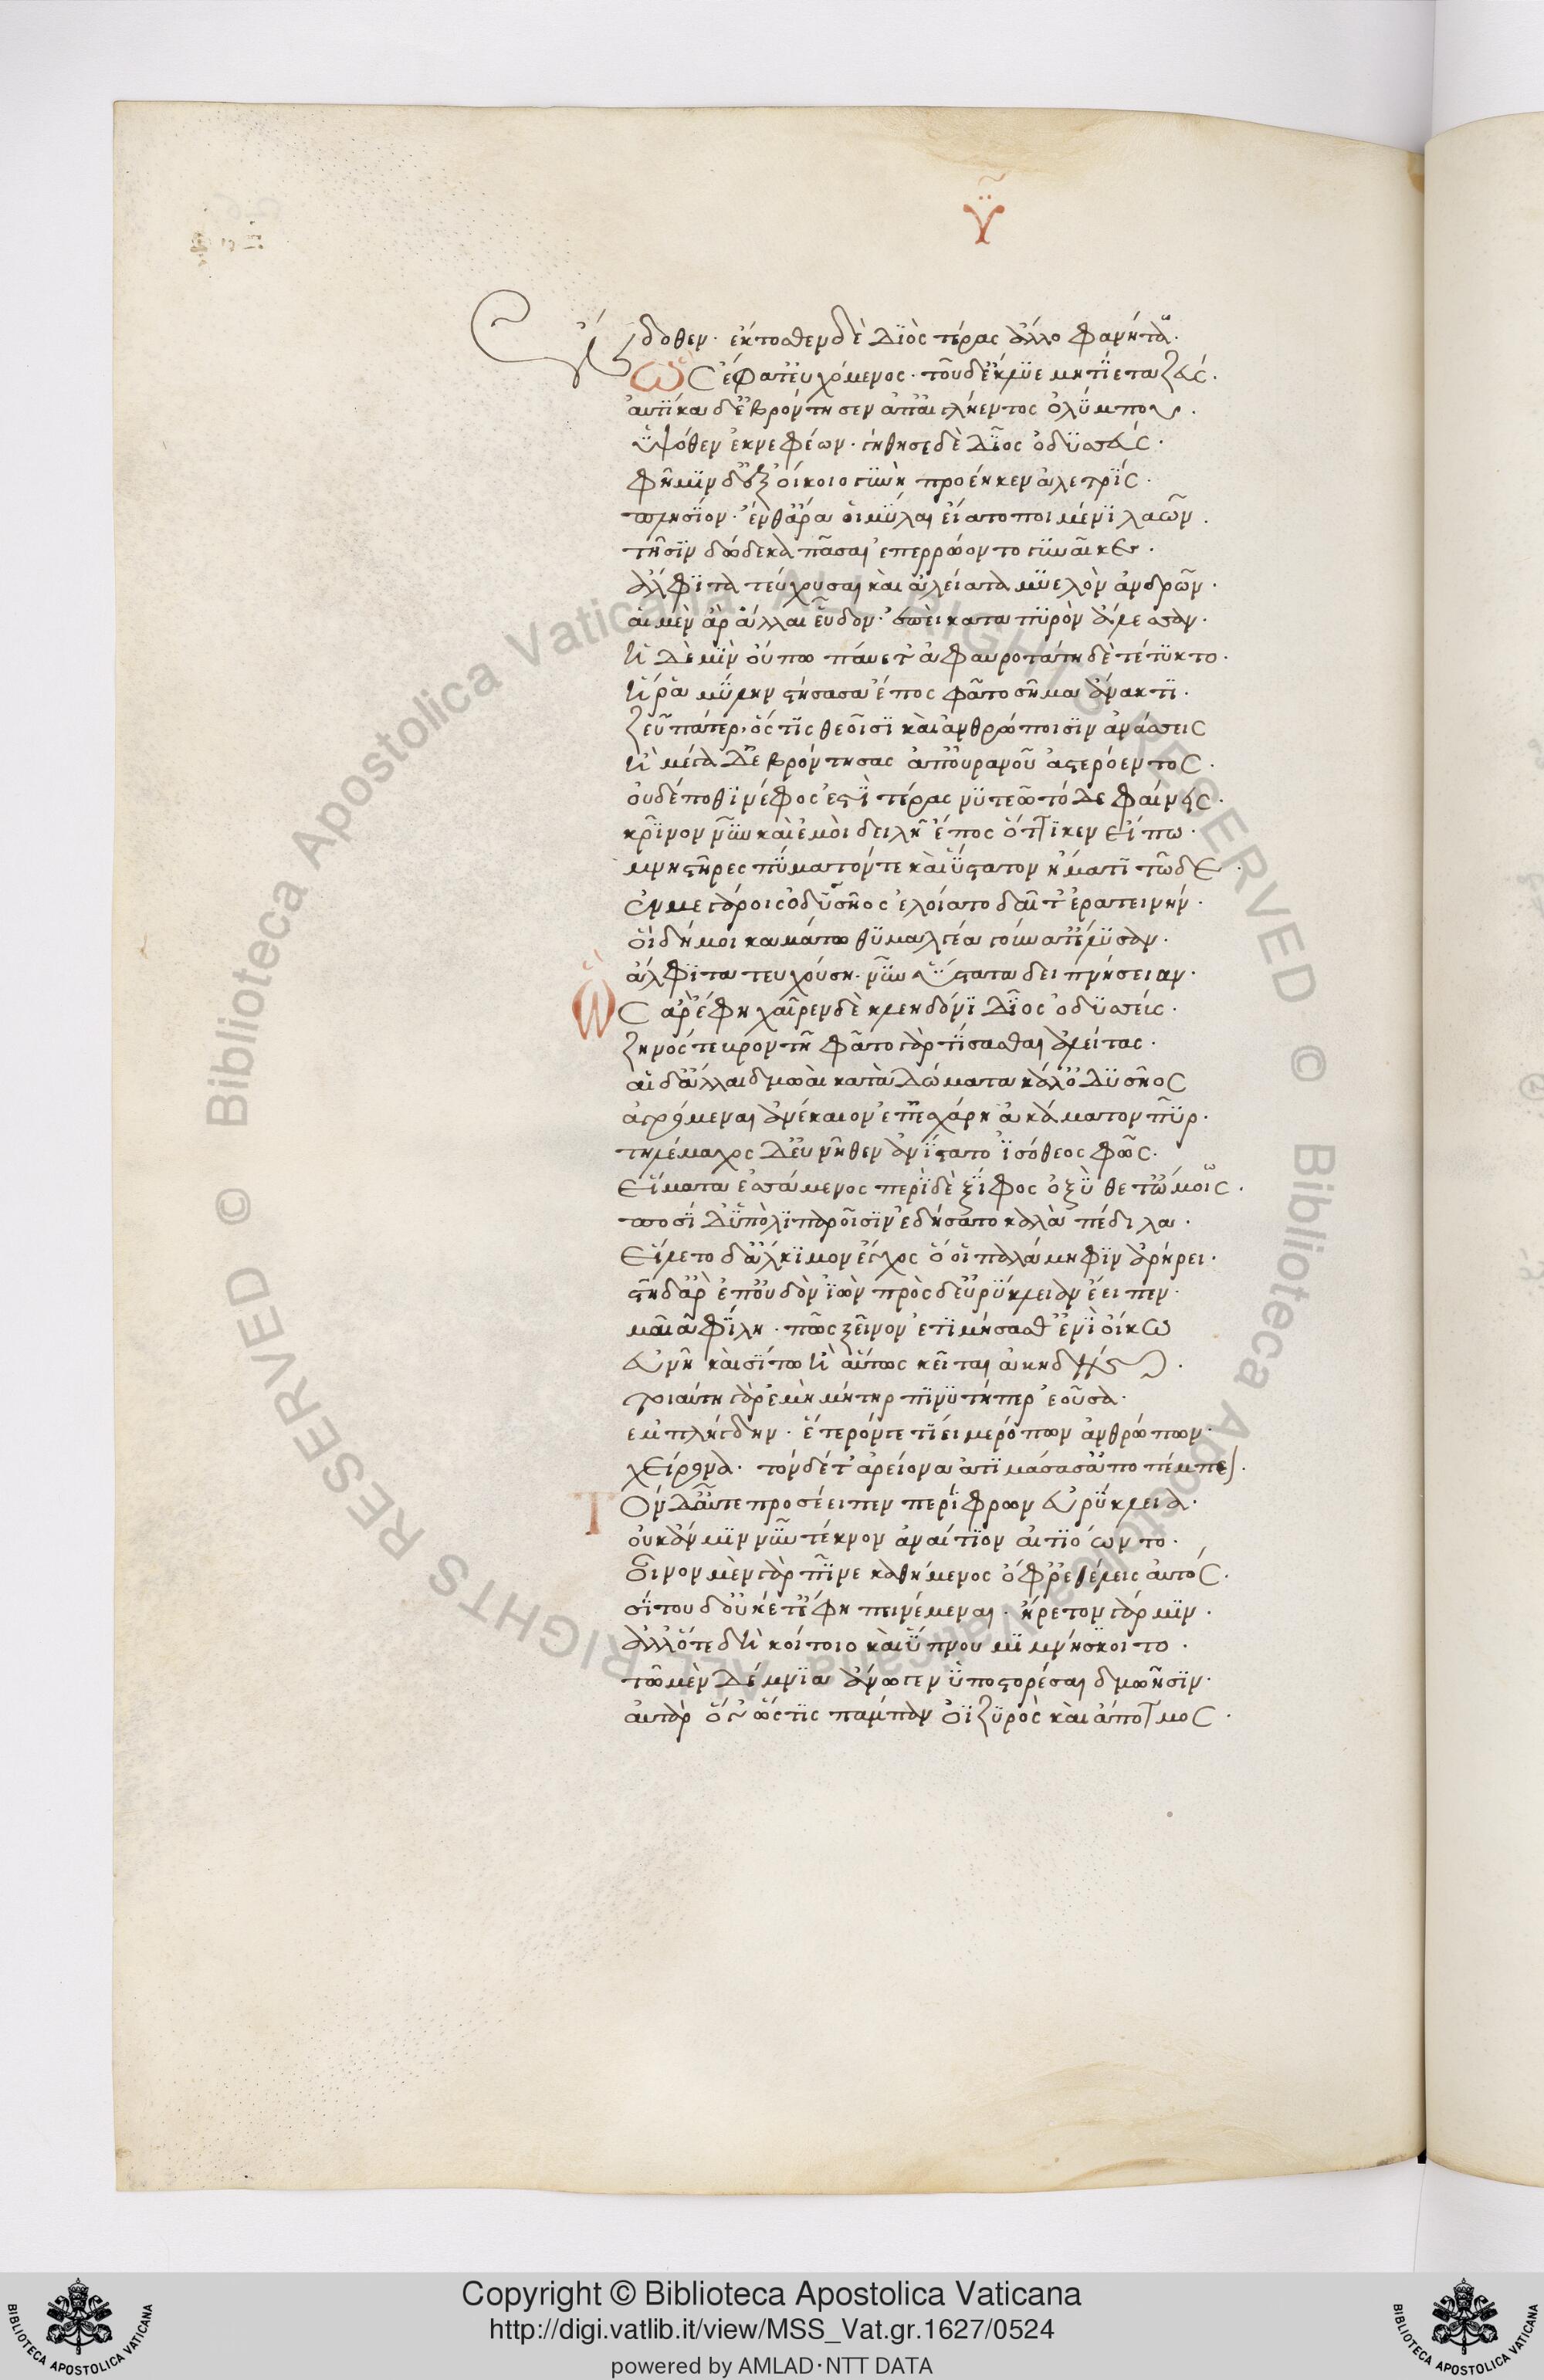 ἔνδοθεν· ἔκτοσθεν δὲ Διὸς τέρας ἄλλο φανήτω·
ὣς ἔφατ' εὐχόμενος· τοῦ δ' ἔκλυε μητίετα ζεύς·
αὐτίκα δ' ἐβρόντησεν ἀπ' αἰγλήεντος ὀλύμπου·
ὑψόθεν ἐκ νεφέων· γήθησε δὲ δῖος ὀδυσσεύς·
φήμιν δ' ἐξ οἴκοιο γυνὴ προέηκεν ἀλετρίς·
πλησίον· ἔνθ' ἄρα οἱ μύλαι εἵατο ποιμένι λαῶν·
τῆσιν δώδεκα πᾶσαι ἐπερρώοντο γυναῖκες·
ἄλφιτα τεύχουσαι καὶ ἀλείατα μυελὸν ἀνδρῶν·
αἱ μὲν ἄρ' ἄλλαι εὗδον· ἐπεὶ κατὰ πυρὸν ἄλεσσαν·
ἡ δὲ μὶν οὔπω παύετ' ἀφαυροτάτη δὲ τέτυκτο·
ἥ ῥα μύλην στήσασα ἔπος φάτο σῆμα ἄνακτι·
ζεῦ πάτερ, ὅς τις θεοῖσι καὶ ἀνθρώποισιν ἀνάσσεις
ἦ μέγα δ' ἐβρόντησας ἀπ' οὐρανοῦ ἀστερόεντος·
οὐδέ ποθι νέφος ἐστὶ τέρας νύ τεω τόδε φαίνεις·
κρῖνον νῦν καὶ ἐμοὶ δειλῆ ἔπος ὅττι κεν εἴπω·
μνηστῆρες πύματόν τε καὶ ὕστατον ἤματι τῶδε·
ἐν μεγάροις ὀδυσῆος ἑλοίατο δαῖτ' ἐρατεινήν·
οἳ δή μοι καμάτω θυμαλγέα γούνατ' ἔλυσαν·
ἄλφιτα τευχούση· νῦν ὕστατα δειπνήσειαν·
ὣς ἄρ' ἔφη χαῖρεν δὲ κλεηδόνι δῖος ὀδυσσεύς·
ζηνός τε βροντῆ φάτο γὰρ τίσασθαι ἀλείτας·
αἱ δ' ἄλλαι δμωαὶ κατὰ δώματα κάλ' ὀδυσῆος
ἀγρόμεναι ἀνέκαιον ἐπ' ἐσχάρη ἀκάματον πῦρ·
τηλέμαχος δ' εὐνῆθεν ἀνίστατο ἰσόθεος φῶς·
εἵματα ἑσσάμενος περὶ δὲ ξίφος ὀξὺ θέτ' ὤμοις·
ποσὶ δ' ὑπὸ λιπαροῖσιν ἐδήσατο καλὰ πέδιλα·
εἵλετο δ' ἄλκιμον ἔγχος ὅ οἱ παλάμηφιν ἀρήρει·
στῆ δ' ἄρ' ἐπ' οὐδὸν ἰὼν πρὸς δ' εὐρύκλειαν ἔειπεν·
μαῖα φίλη· πῶς ξεῖνον ἐτιμήσασθ' ἐνὶ οἴκω
εὐνῆ καὶ σίτω ἦ αὔτως κεῖται ἀκηδής·
τοιαύτη γὰρ ἐμὴ μήτηρ πινυτή περ ἐοῦσα·
ἐμπλήγδην· ἕτερόν γε τίει μερόπων ἀνθρώπων·
χείρονα· τὸν δέ τ' ἀρείον' ἀτιμάσασ' ἀποπέμπει·
τὸν δ' αὖτε προσέειπεν περίφρων εὐρύκλεια·
οὐκ ἄν μιν νῦν τέκνον ἀναίτιον αἰτιόωντο·
οἶνον μὲν γὰρ πῖνε καθήμενος ὄφρ' ἔθελεις αὐτός·
σίτου δ' οὐκέτ' ἔφη πεινέμεναι· ἤρετο γάρ μιν·
ἀλλ' ὅτε δὴ κοίτοιο καὶ ὕπνου μιμνήσκοιτο·
τῶ μὲν δέμνια ἄνωγεν ὑποστορέσαι δμωῆσιν·
αὐτὰρ ὅ γ' ὥς τις πάμπαν ὀϊζυρὸς καὶ ἄποτμος·
Copyright © Biblioteca Apostolica Vaticana
http://digi.vatlib.it/view/MSS_Vat.gr.1627/0524
powered by AMLAD·NTT DATA